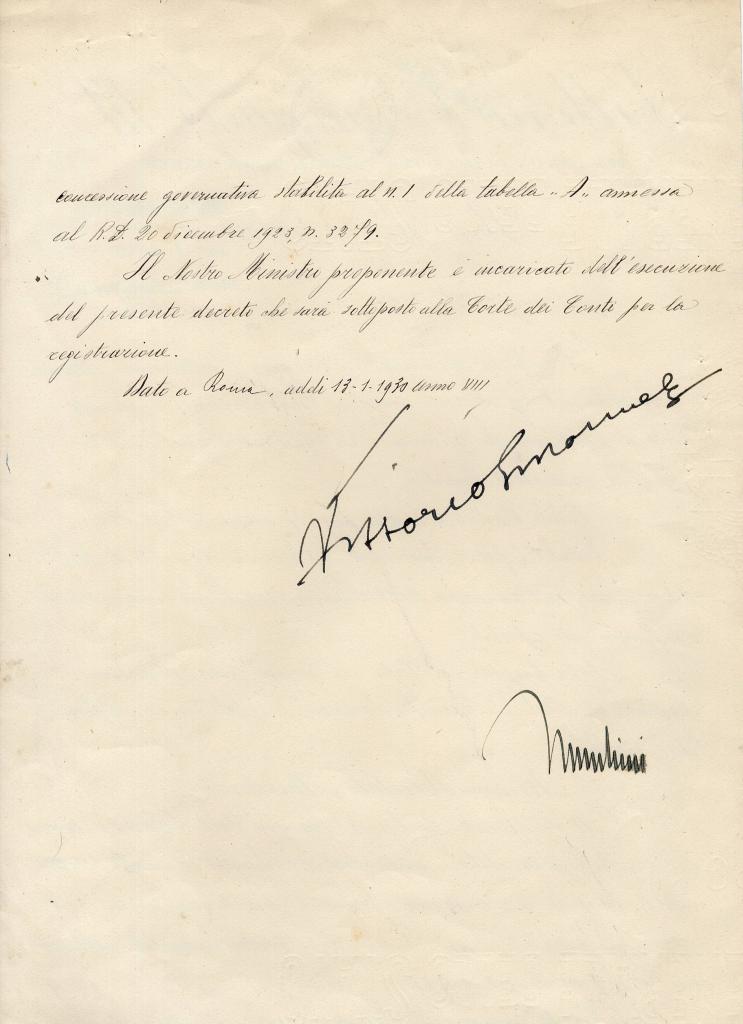 concessione governativa stabilita al n. 1 della tabella „A„ annessa
al R.D. 20 dicembre 1923, n. 3279.
Il Nostro Ministro proponente è incaricato dell'esecuzione
del presente decreto che sarà sottoposto alla Corte dei Conti per la
registrazione.
Dato a Roma, addì 13-1-1930 Anno VIII
Vittorio Emanuele